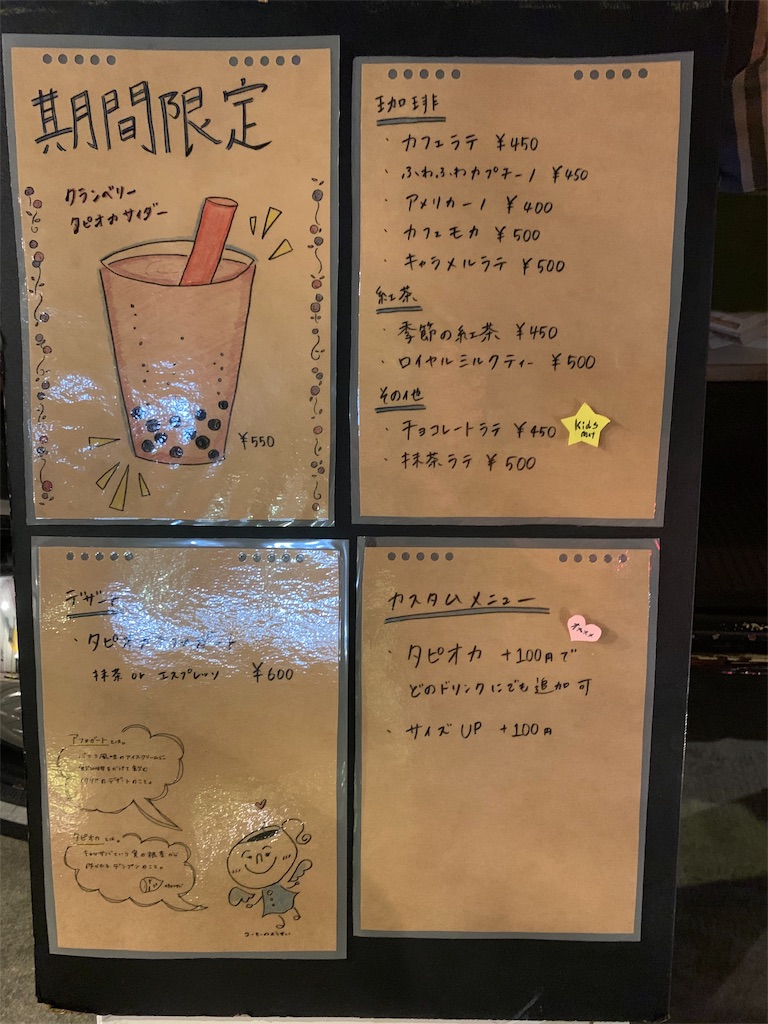 期間限定
クランベリー
タピオカサイダー
¥550
珈琲
・カフェラテ ¥450
・ふわふわカプチーノ ¥450
・アメリカーノ ¥400
・カフェモカ ¥500
・キャラメルラテ ¥500
紅茶
・季節の紅茶 ¥450
・ロイヤルミルクティー ¥500
その他
・チョコレートラテ ¥450
Kids
・抹茶ラテ ¥500
デザート
・タピ
抹茶 or エスプレッソ ¥600
アフォガートとは。
バニラ風味のアイスクリームに
イタリアのデザートのこと。
タピオカとは。
カスタムメニュー
オススメ
・タピオカ +100円で
どのドリンクにでも追加可
・サイズUP +100円